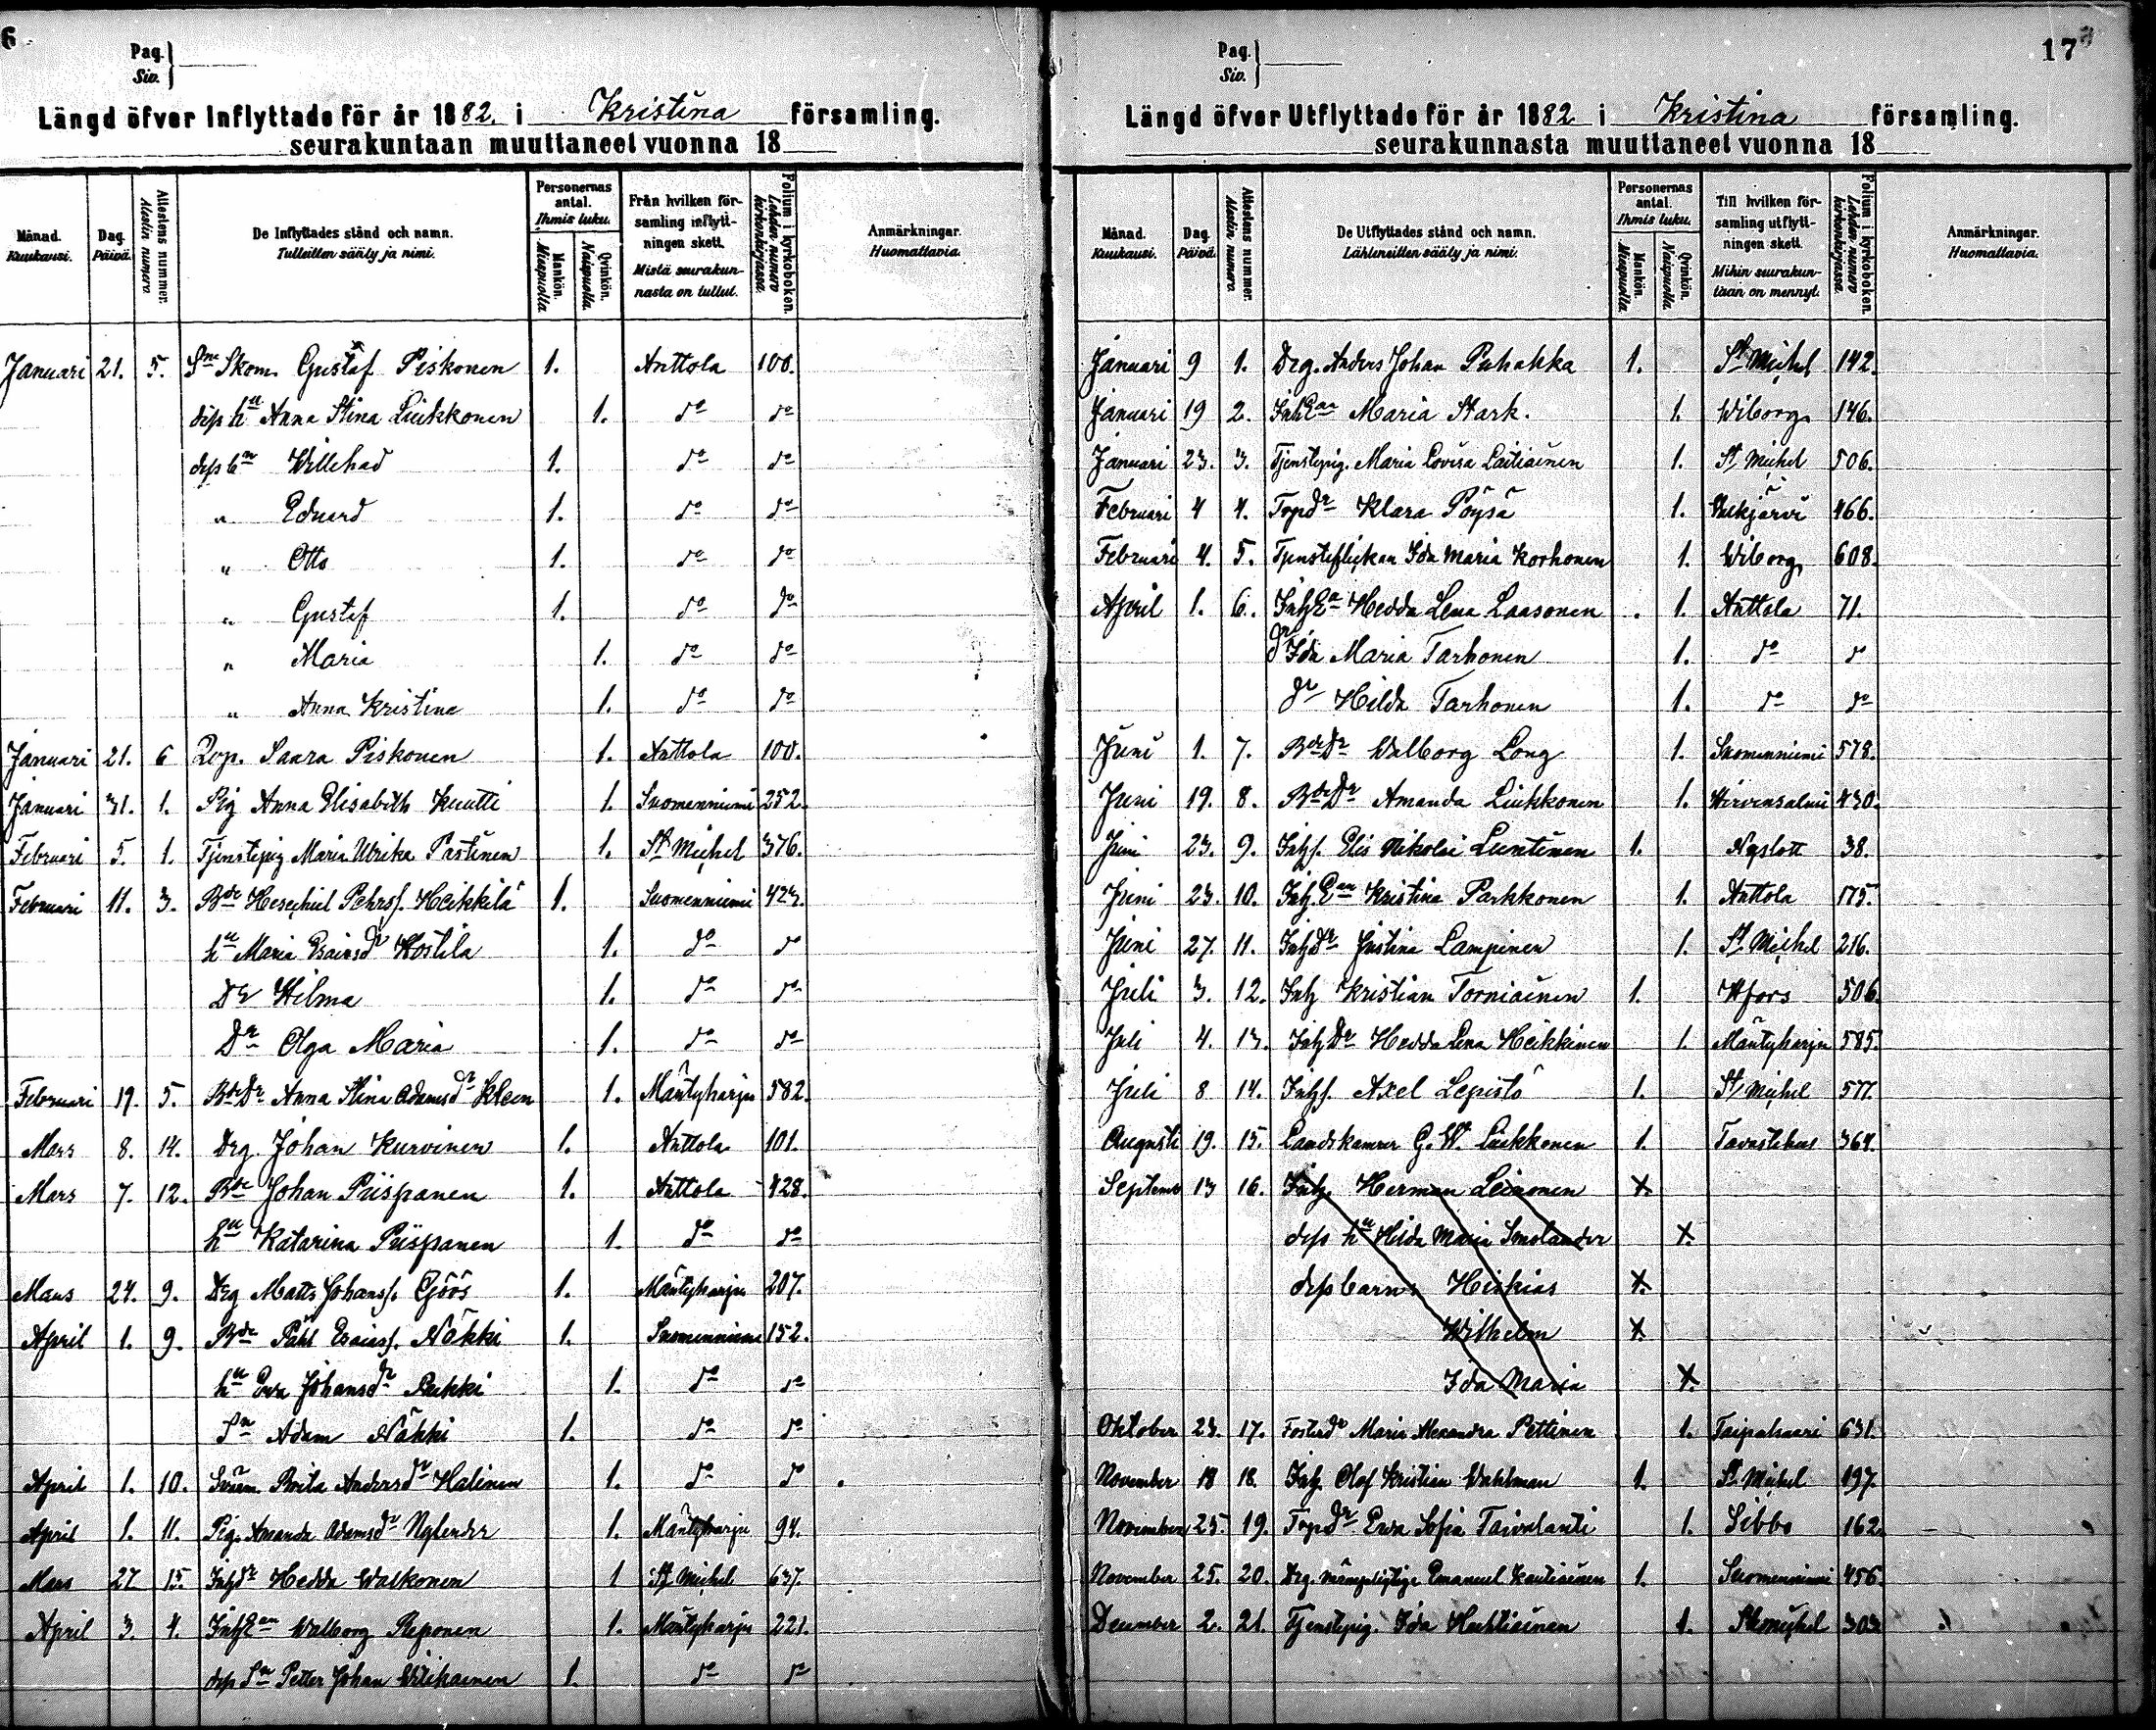 6
Pag.
Siv.
Längd öfver Inflyttade för år 1882. i Kristina församling.
seurakuntaan muuttaneet vuonna 18
Månad. Kuukausi.
Dag. Päivä.
Attestens nummer. Alestin numero.
De Inflyttades stånd och namn. Tulleitten sääty ja nimi.
Personernas antal. Ihmis luku.
Mankön. Miespuolia
Qvinkön. Naispuolia.
Från hvilken församling inflyttningen skett. Mistä seurakunnasta on tullut.
Folium i kyrkoboken. Lahden numero kirkonkirjassa.
Anmärkningar. Huomattavia.
Januari 21. 5. Sne Skom. Gustaf Piskonen 1. Anttola 100.
dess hu Anna Stina Liukkonen 1. do do
dess bn Willehad 1. do do
" Eduard 1. do do
" Otto 1. do do
" Gustaf 1. do do
" Maria 1. do do
" Anna Kristina 1. do do
Januari 21. 6 Qvp. Saara Piskonen 1. Anttola 100.
Januari 31. 1. Pig Anna Elisabeth Kuutti 1. Suomenniemi 252.
Februari 5. 1. Tjenstepig Maria Ulrika Pastinen 1. St Michel 376.
Februari 11. 3. Bde Hesechiel Pehrss. Heikkilä 1. Suomenniemi 423.
hu Maria Esaiasdr Kostila 1. do do
Dr Hilma 1. do do
Dr Olga Maria 1. do do
Februari 19. 5. BdeDr Anna Stina Adamsdr Klem 1. Mäntyharju 582.
Mars 8. 14. Drg. Johan Kurvinen 1. Anttola 101.
Mars 7. 12. Bde Johan Piispanen 1. Anttola 428.
hu Katarina Piispanen 1. do do
Mars 24. 9. Drg Matts Johanss. Göös 1. Mäntyharju 207.
April 1. 9. Bde Påhl Esaiass. Näkki 1. Suomenniemi 152.
hu Eva Johansdr Pukki 1. do do
Sn Adam Näkki 1. do do
April 1. 10. Brita Andersdr Halinen 1. do do
April 1. 11. Pig. Amanda Adamsdr Nylender 1. Mäntyharju 94.
Mars 27 15. Inhdr Hedda Walkonen 1 St Michel 637.
April 3. 4. InhEan Walborg Reponen 1. Mäntyharju 221.
dess Sn Petter Johan Wilikainen 1. do do
17
Pag.
Siv.
Längd öfver Utflyttade för år 1882 i Kristina församling.
seurakunnasta muuttaneet vuonna 18
Månad. Kuukausi.
Dag. Päivä.
Attestens nummer. Alestin numero.
De Utflyttades stånd och namn. Lähteneitten sääty ja nimi.
Personernas antal. Ihmis luku.
Mankön. Miespuolia
Qvinkön. Naispuolia.
Till hvilken församling utflyttningen skett. Mihin seurakuntaan on mennyt.
Folium i kyrkoboken. Lahden numero kirkonkirjassa.
Anmärkningar. Huomattavia.
Januari 9 1. Drg. Anders Johan Puhakka 1. St Michel 142.
Januari 19 2. InhEan Maria Stark. 1. Wiborg 146.
Januari 23. 3. Tjenstepig. Maria Lovisa Laitiainen 1. St Michel 506.
Februari 4 4. Torpdr Klara Pöysä 1. Valkjärvi 466.
Februari 4. 5. Tjensteflickan Ida Maria Korhonen 1. Wiborg 608.
April 1. 6. InhEa Hedda Lena Laasonen 1. Anttola 71.
dr Ida Maria Tarhonen 1. do do
dr Hilda Tarhonen 1. do do
Juni 1. 7. BdeDr Walborg Long 1. Suomenniemi 578.
Juni 19. 8. BdeDr Amanda Liukkonen 1. Hirvensalmi 430.
Juni 23. 9. Inhs. Elis Nikolai Luntinen 1. Nyslott 38.
Juni 23. 10. InhEan Kristina Parkkonen 1. Anttola 175.
Juni 27. 11. Inhdr Justina Lampinen 1. St Michel 216.
Juli 3. 12. Inh Kristian Torniainen 1. Hfors 506.
Juli 4. 13. InhDr Hedda Lena Heikkinen 1. Mäntyharju 585.
Juli 8 14. Inhs. Axel Lepistö 1. St Michel 577.
Augusti 19. 15. Landskamrer G. W. Liukkonen 1. Tavastehus 364.
Septemb 13 16. Inh. Herman Leinonen 1.
dess hu Hilda Maria Smolander 1.
dess barn Hiskias 1.
Wilhelm 1.
Ida Maria 1.
Oktober 23. 17. Fosterdr Maria Alexandra Pettinen 1. Taipalsaari 631.
November 18 18. Inh. Olof Kristian Wahlman 1. St Michel 197.
November 25. 19. Torpdr Ewa Sofia Taivalanti 1. Sibbo 162.
November 25. 20. Drg. Emanuel Kautiainen 1. Suomenniemi 456.
December 2. 21. Tjenstepig. Ida Huhtiainen 1. St Michel 303.